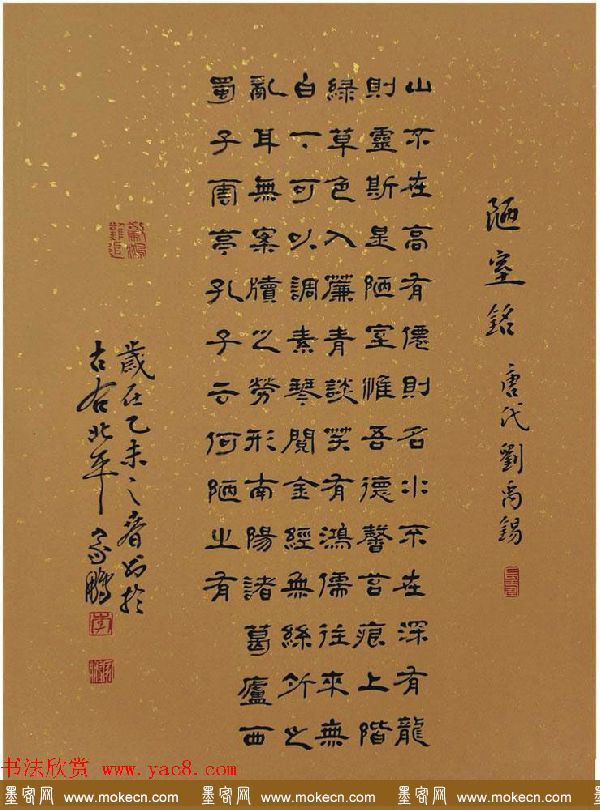 墨客网 www.mokecn.com 墨客网 www.mokecn.com 墨客网 www.mokecn.com
陋室銘 唐代劉禹錫
山不在高有僊則名水不在深有龍
則靈斯是陋室惟吾德馨苔痕上階
綠草色入簾青談笑有鴻儒往來無
白丁可以調素琴閱金經無絲竹之
亂耳無案牘之勞形南陽諸葛廬西
蜀子雲亭孔子云何陋之有
歲在乙未之春書於
古右北平家鵬
书法欣赏 www.yac8.com
墨客网 www.mokecn.com 墨客网 www.mokecn.com 墨客网 www.mokecn.com